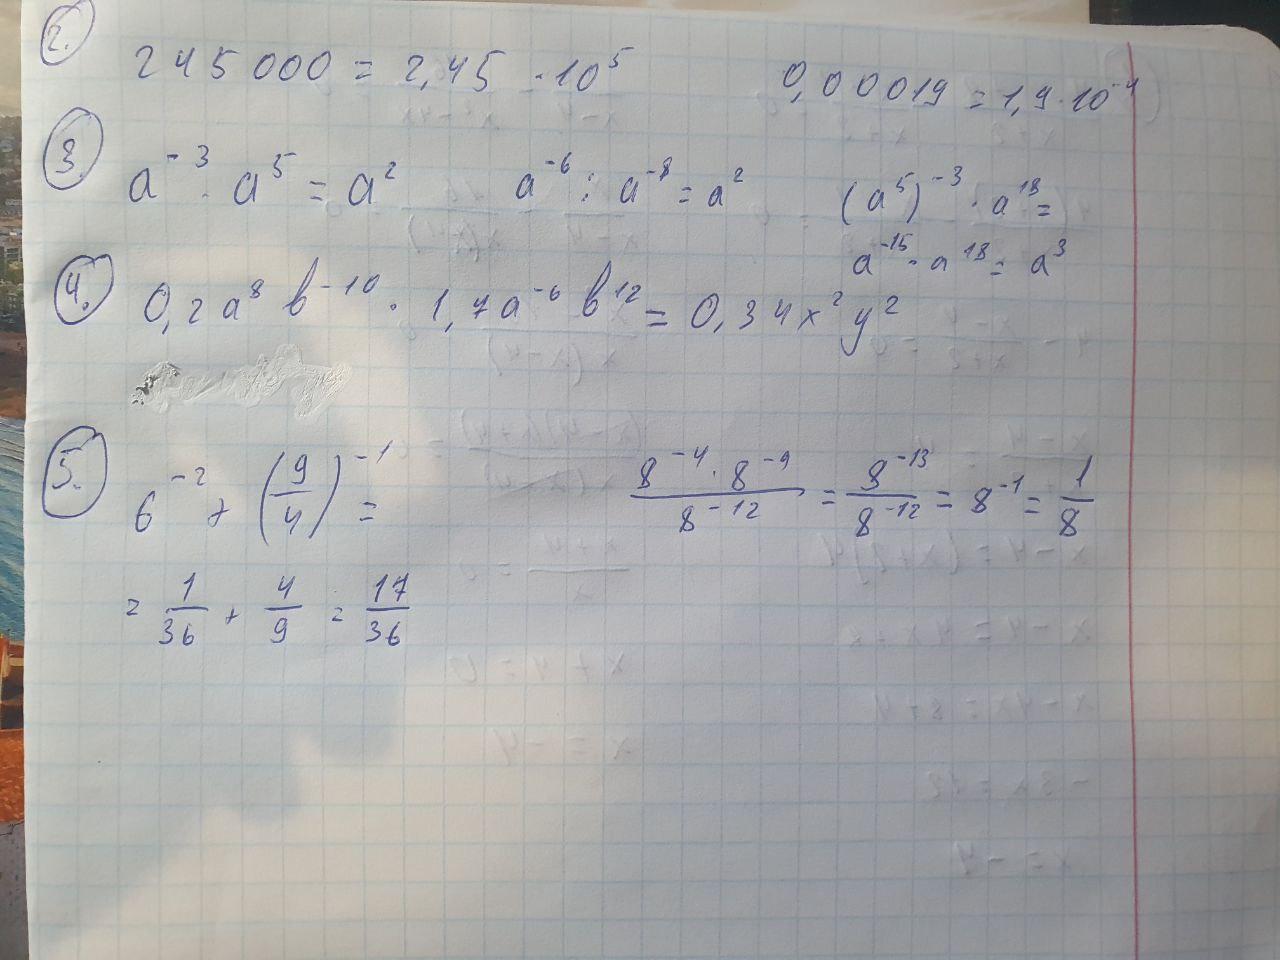 2. 245 000 = 2,45 · 10⁵ 0,00019 = 1,9 · 10⁻⁴
3. a⁻³ · a⁵ = a² a⁻⁶ : a⁻⁸ = a² (a⁵)⁻³ · a¹⁸ =
a⁻¹⁵ · a¹⁸ = a³
4. 0,2a⁸ b⁻¹⁰ · 1,7a⁻⁶ b¹² = 0,34x² y²
5. 6⁻² + (9/4)⁻¹ = (8⁻⁴ · 8⁻⁹)/8⁻¹² = 8⁻¹³/8⁻¹² = 8⁻¹ = 1/8
= 1/36 + 4/9 = 17/36